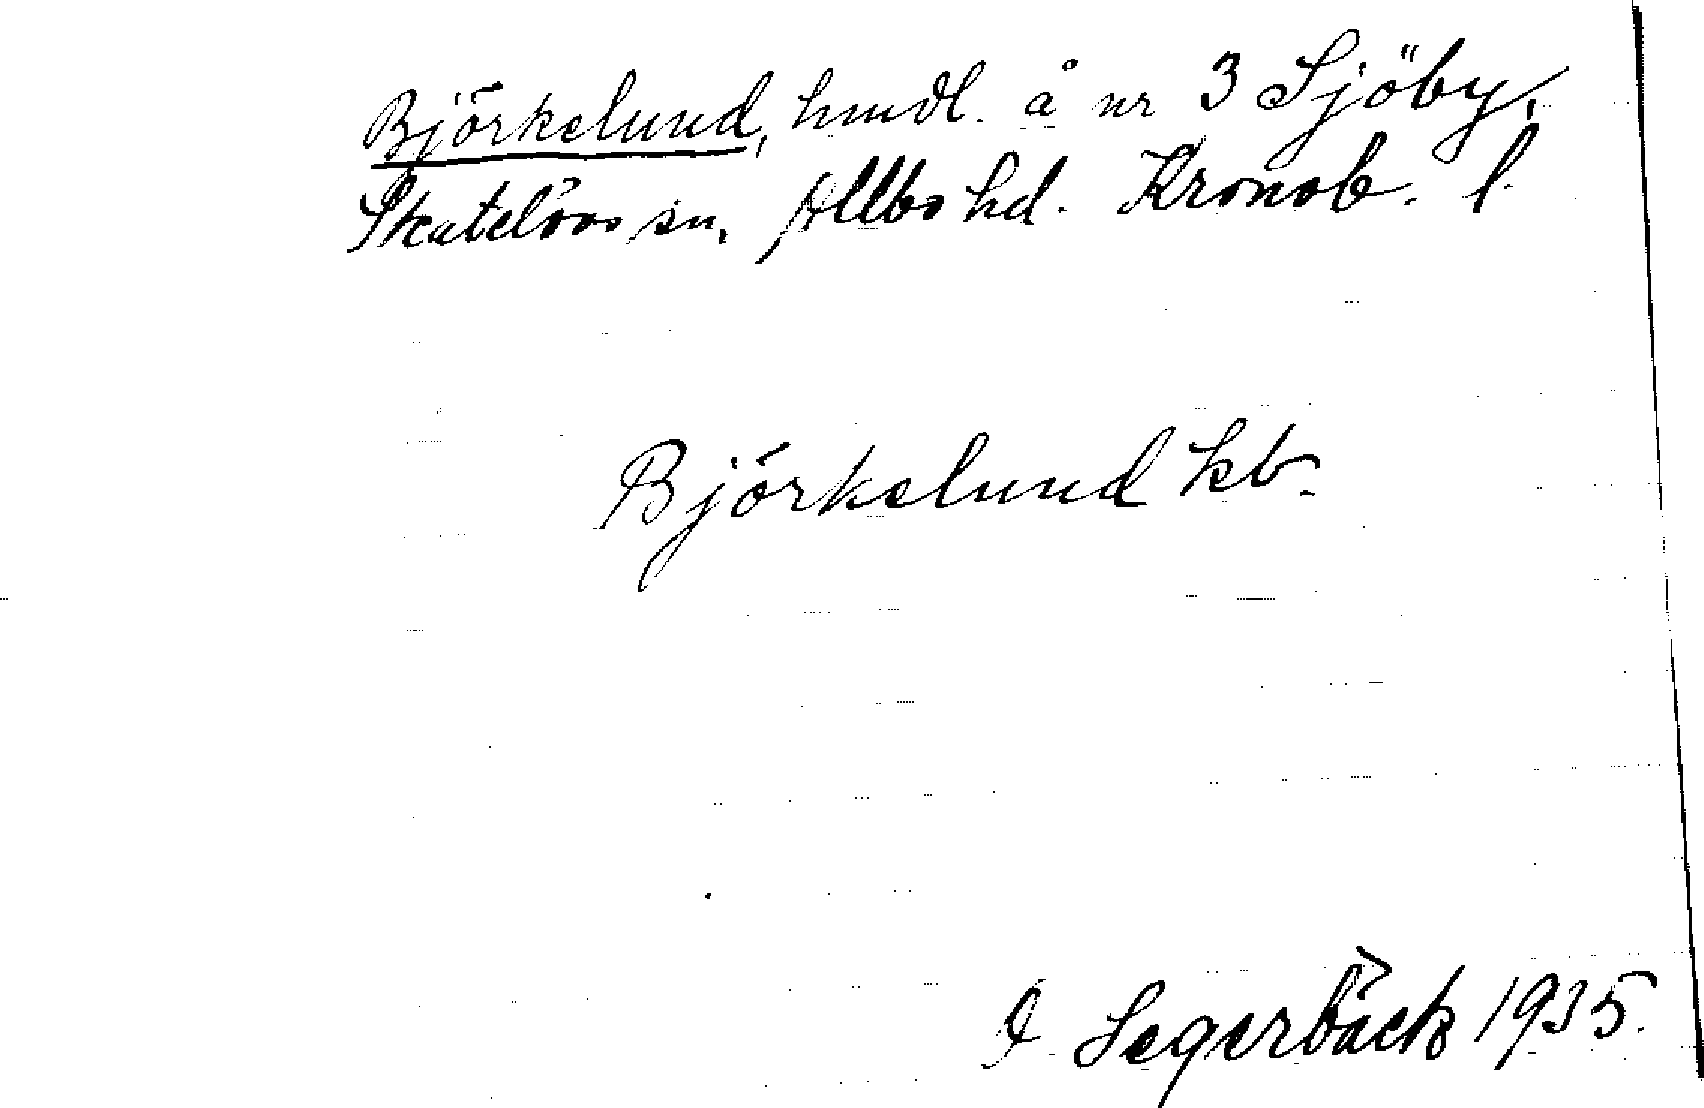 Björkelund, hmdl. å nr 3 Sjöby,
Skatelövs sn, Allbo hd. Kronob. l.
Björkelund hb.
J Segerbäck 1935.